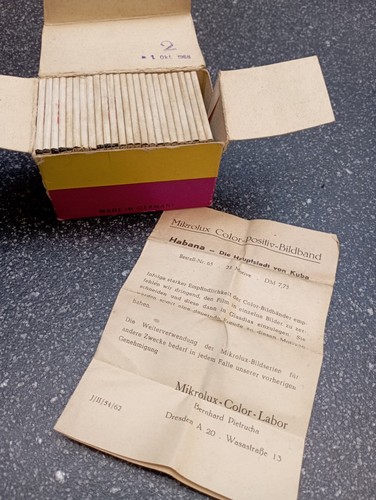 2
1 Okt. 1968
MADE IN GERMANY
Mikrolux Color-Positiv-Bildband
Habana – Die Hauptstadt von Kuba
Bestell-Nr. 67 DM 7,25
Infolge starker Empfindlichkeit der Color-Bildbänder emp-
fehlen wir dringend, den Film in einzelne Bilder zu zer-
schneiden und diese dann in Glasdias einzulegen. Sie
werden somit eine dauernde Freude an diesen
haben.
Die Weiterverwendung der Mikrolux-Bildserien für
andere Zwecke bedarf in jedem Falle unserer vorherigen
Genehmigung
Mikrolux-Color-Labor
Bernhard Pietrudis
Dresden A 20 - Wasastraße 13
J/II/54/62